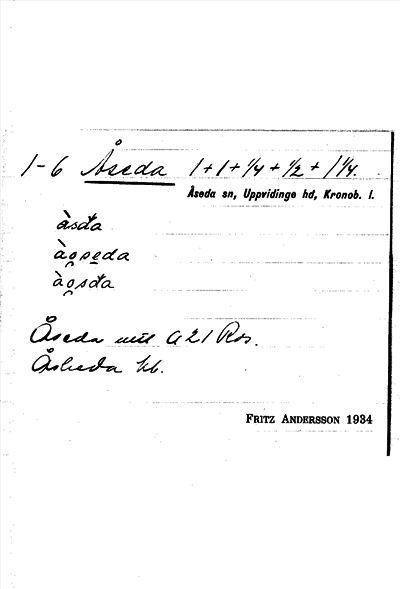 1-6 Åseda 1+1+1/4+1/2+1 1/4.
Åseda sn, Uppvidinge hd, Kronob. l.
àsđa
ào̯seda
ào̯sđa
Åseda utt G21 Ros.
Åsheda kb.
FRITZ ANDERSSON 1934